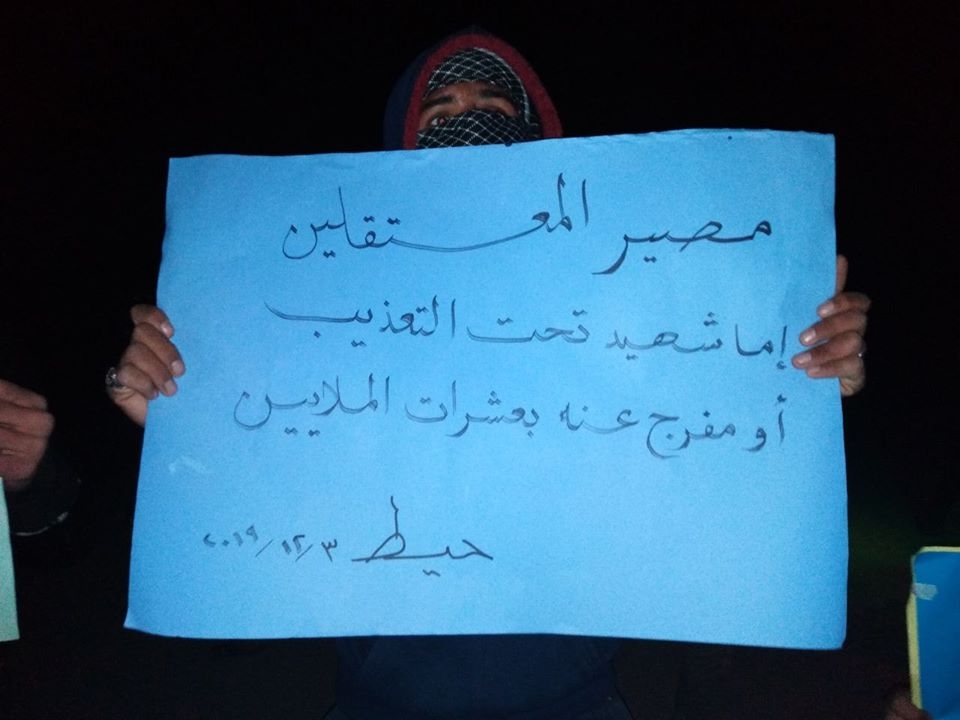 مصير المعتقلين
إما شهيد تحت التعذيب
أو مفرج عنه بعشرات الملايين
حيط ٣/١٢/٢٠١٩